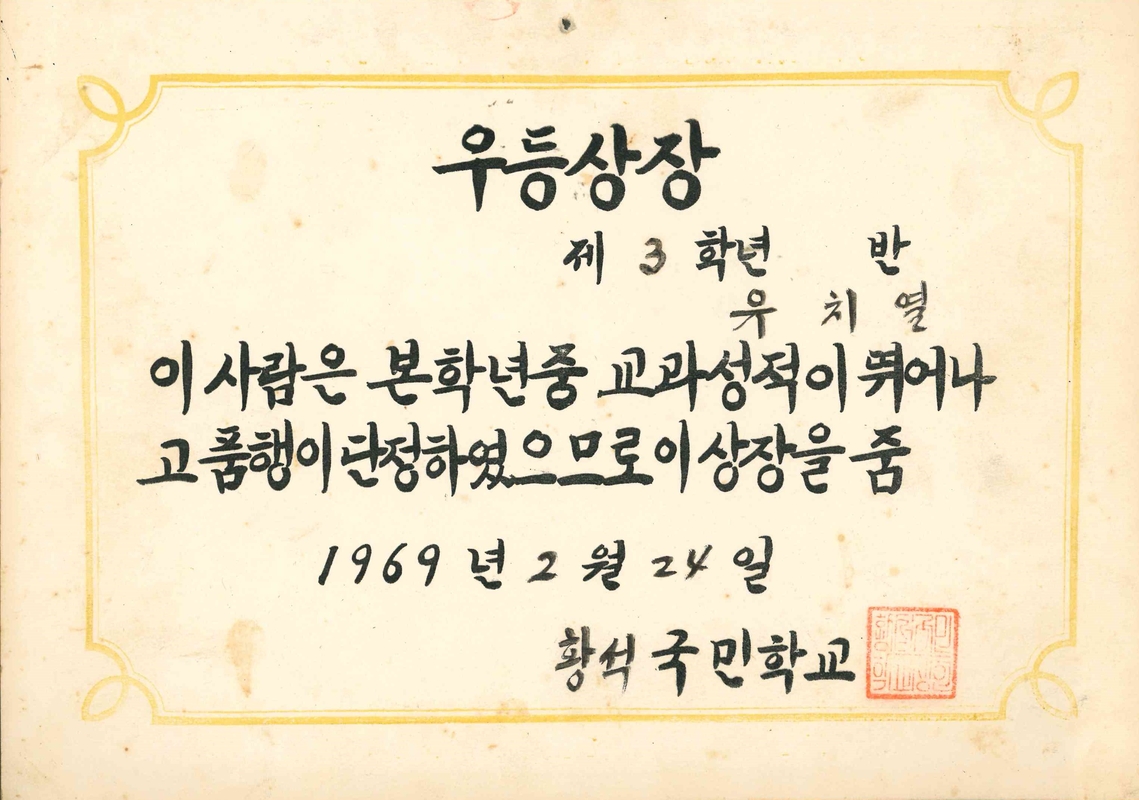 우등상장
제 3 학년 반
유 치 열
이 사람은 본 학년중 교과성적이 뛰어나
고 품행이 단정하였으므로 이 상장을 줌
1969 년 2 월 24 일
황석 국민학교